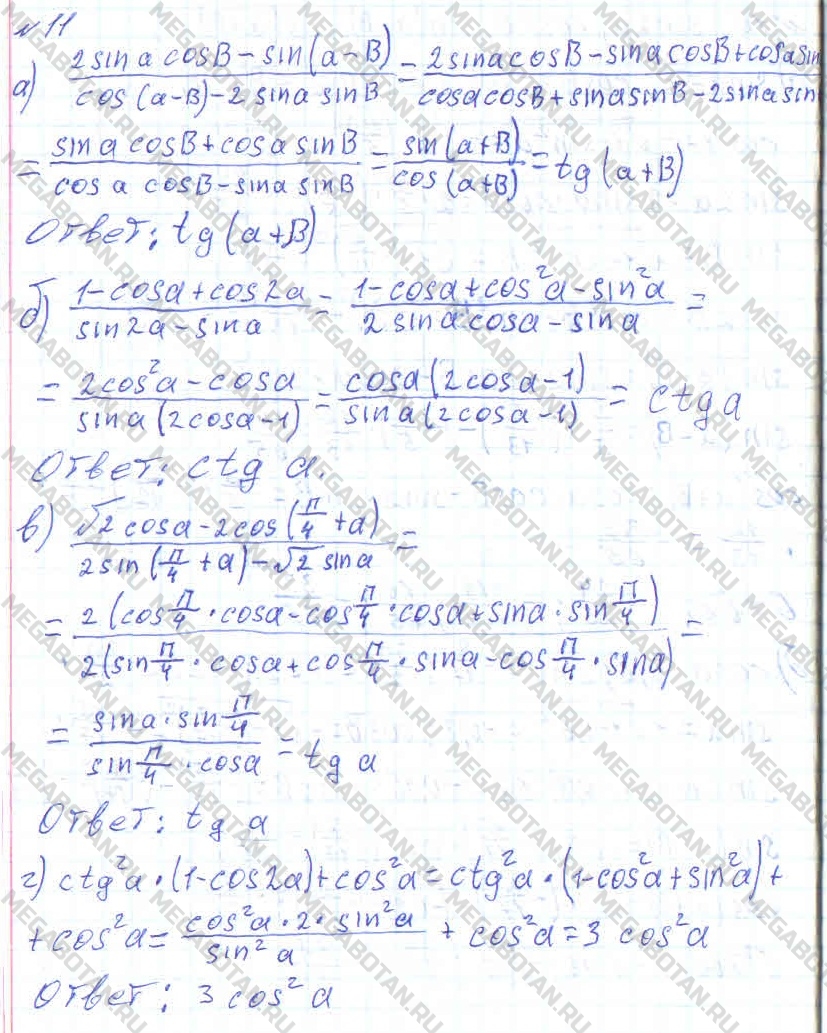 № 11
а) (2 sin a cosB - sin(a-B)) / (cos(a-B) - 2 sina sinB) = (2 sinacosB - sina cosB + cosasin / (cosacosB + sinasinB - 2sina sin
= (sin a cosB + cosa sinB) / (cos a cosB - sina sinB) = sin(a+B) / cos(a+B) = tg(a+B)
Ответ: tg(a+B)
б) (1-cosa+cos2a) / (sin2a-sina) = (1-cosa+cos²a-sin²a) / (2sina cosa - sina) =
= (2cos²a - cosa) / (sina(2cosa-1)) = cosa(2cosa-1) / sina(2cosa-1) = ctg a
Ответ: ctg a.
в) (√2 cosa - 2cos(π/4 + a)) / (2sin(π/4 + a) - √2 sina) =
= 2(cos π/4 · cosa - cos π/4 · cosa + sina · sin π/4) / 2(sin π/4 · cosa + cos π/4 · sina - cos π/4 · sina) =
= (sina · sin π/4) / (sin π/4 · cosa) = tg a
Ответ: tg a
г) ctg²a · (1-cos2a) + cos²a = ctg²a · (1-cos²a + sin²a) +
+ cos²a = (cos²a · 2 · sin²a) / sin² a + cos²a = 3 cos²a
Ответ: 3 cos² a
MEGABOTAN.RU